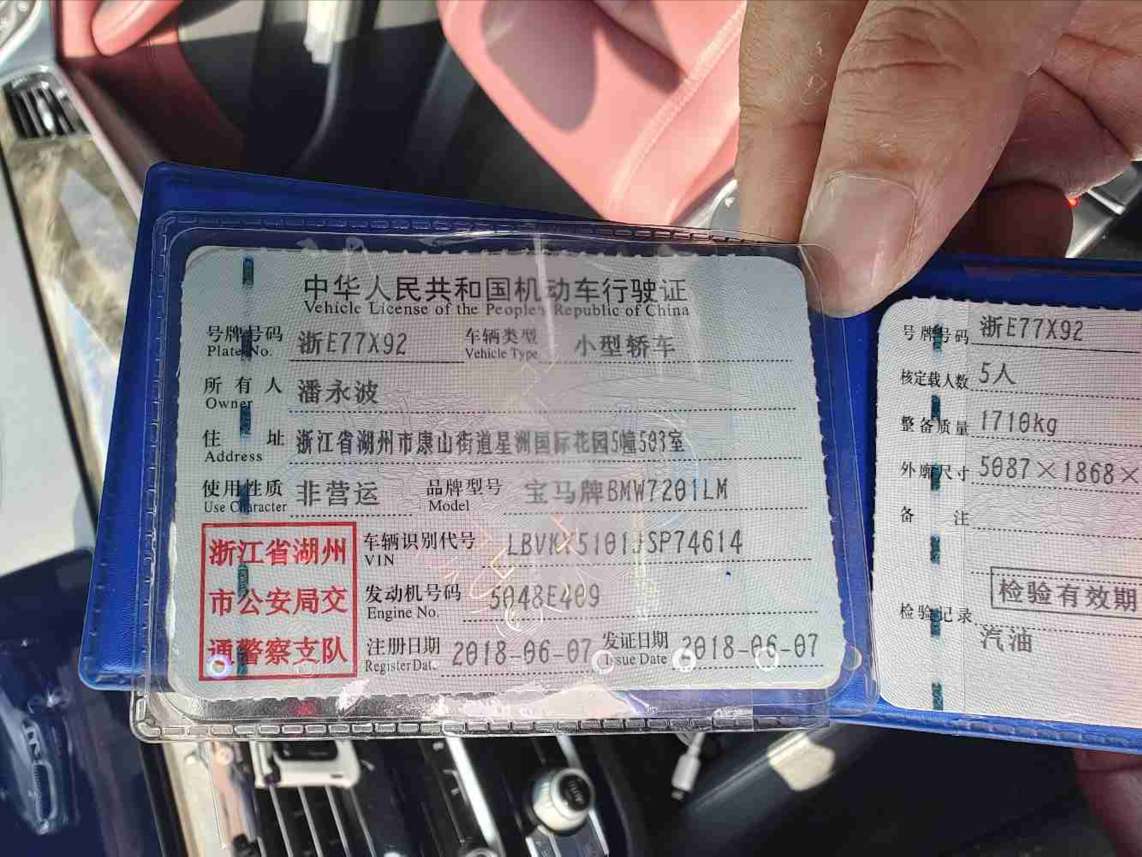 中华人民共和国机动车行驶证
Vehicle License of the People's Republic of China
号牌号码 浙E77X92 车辆类型 小型轿车
Plate No. Vehicle Type
所有人 潘永波
Owner
住址 浙江省湖州市康山街道星洲国际花园5幢503室
Address
使用性质 非营运 品牌型号 宝马牌BMW7201LM
Use Character Model
浙江省湖州
市公安局交
通警察支队
车辆识别代号
VIN
发动机号码 5048E409
Engine No.
注册日期 2018-06-07 发证日期 2018-06-07
Register Date Issue Date
号牌号码 浙E77X92
核定载人数 5人
整备质量 1710kg
外廓尺寸 5087×1868×
备注
检验有效期
检验记录
汽油